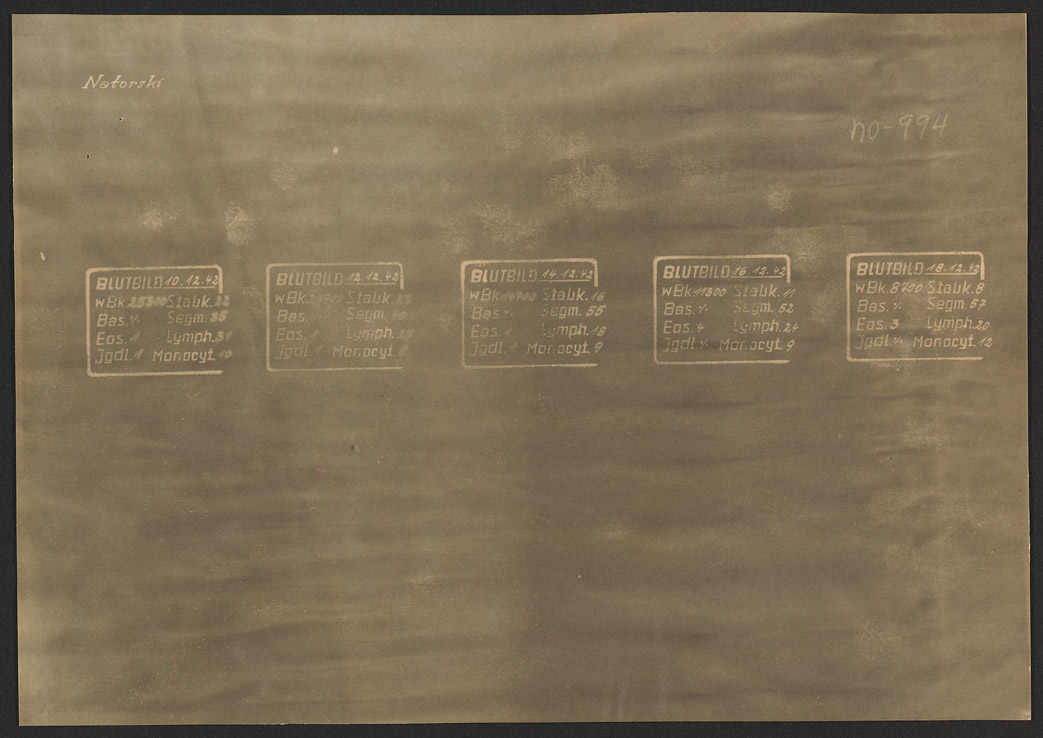 Natorski
no-994
BLUTBILD 10.12.42
wBk. 25300 Stabk. 22
Bas. ·/. Segm. 35
Eos. 1 Lymph. 31
Jgdl. 1 Monocyt. 10
BLUTBILD 12.12.42
wBk. Stabk. 23
Bas. ·/. Segm.
Eos. 1 Lymph.
Jgdl. 1 Monocyt.
BLUTBILD 14.12.42
wBk. Stabk. 16
Bas. ·/. Segm. 55
Eos. 1 Lymph. 18
Jgdl. 1 Monocyt. 9
BLUTBILD 16.12.42
wBk. 11300 Stabk. 11
Bas. ·/. Segm. 52
Eos. 4 Lymph. 24
Jgdl. ·/. Monocyt. 9
BLUTBILD 18.12.42
wBk. 8700 Stabk. 8
Bas. ·/. Segm. 57
Eos. 3 Lymph. 20
Jgdl. ·/. Monocyt. 12